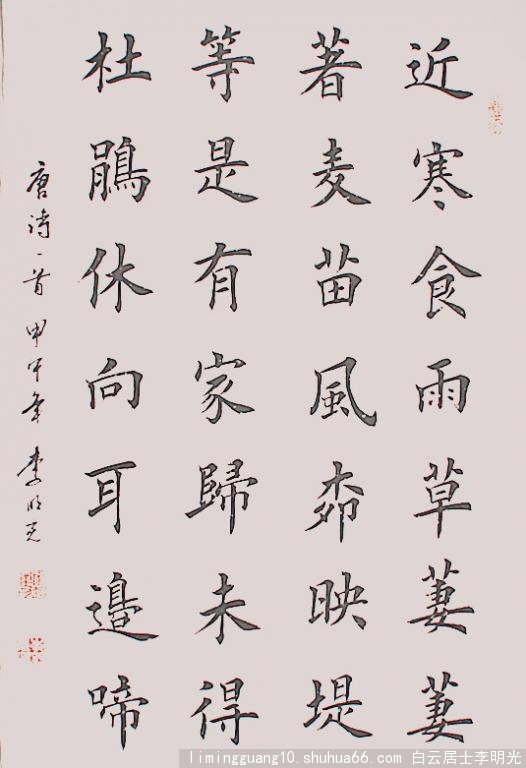 近寒食雨草萋萋
著麦苗風桺映堤
等是有家歸未得
杜鵑休向耳邊啼
唐诗一首 甲午年 李明光
limingguang10.shuhua66.com 白云居士李明光